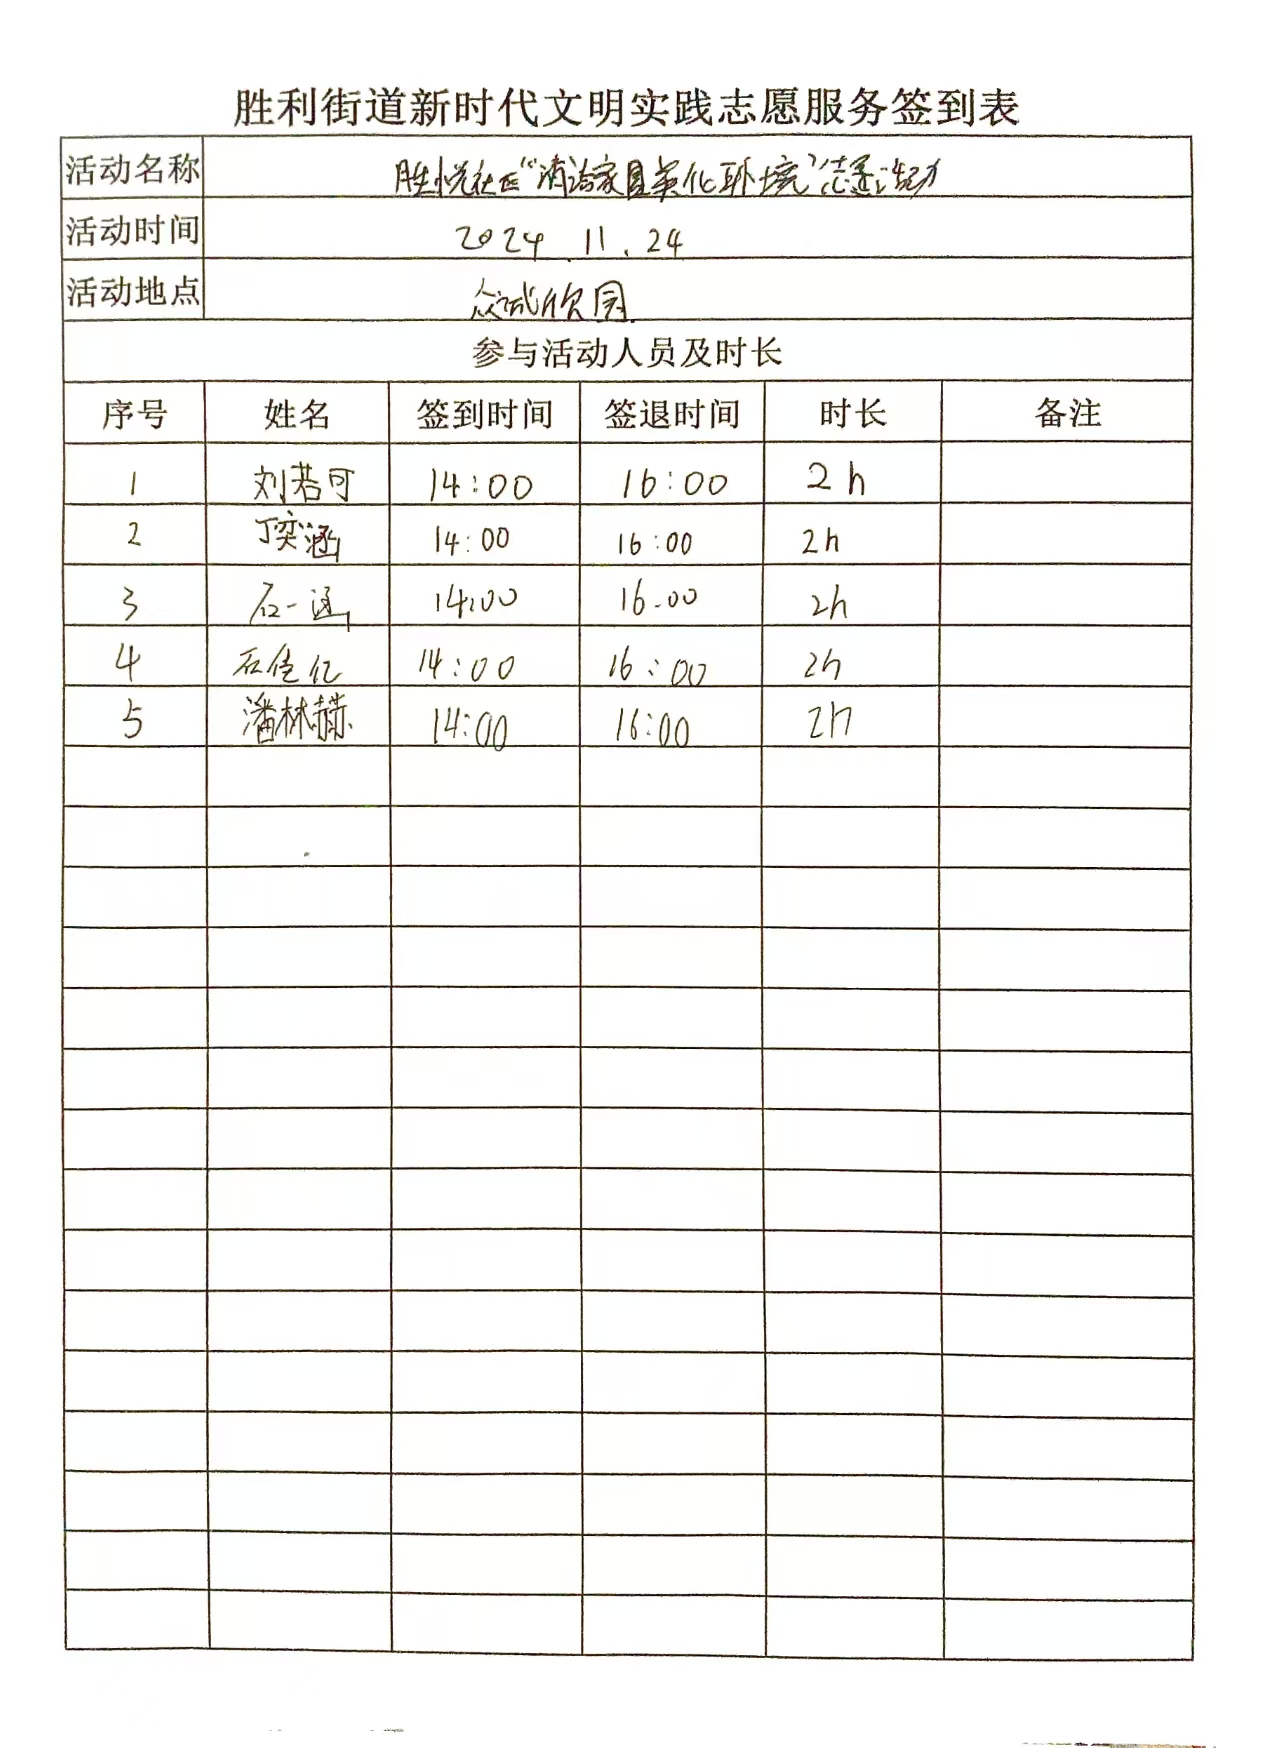 胜利街道新时代文明实践志愿服务签到表
活动名称 胜悦社区“清洁家园美化环境”志愿活动
活动时间 2024.11.24
活动地点 众诚欣园
参与活动人员及时长
序号 姓名 签到时间 签退时间 时长 备注
1 刘若可 14:00 16:00 2h
2 丁奕涵 14:00 16:00 2h
3 石一涵 14:00 16:00 2h
4 石佳亿 14:00 16:00 2h
5 潘林赫 14:00 16:00 2h